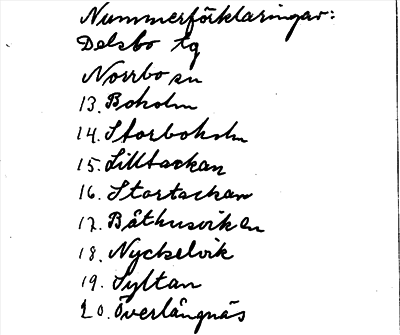 Nummerförklaringar:
Delsbo tg
Norrbo sn
13. Boholm
14. Storboholm
15. Lilltackan
16. Stortackan
17. Båthusviken
18. Nyckelvik
19. Syltan
20. Överlångnäs